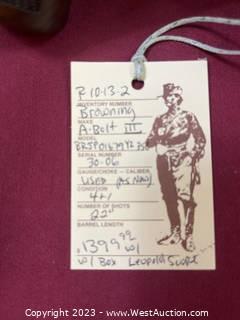 P 10-13-2
INVENTORY NUMBER
Browning
MAKE
A-Bolt III
MODEL
SERIAL NUMBER
30-06
GAUGE/CHOKE - CALIBER
USED (AS NEW)
CONDITION
4+1
NUMBER OF SHOTS
22"
BARREL LENGTH
1399.99
W/ Box Leupold Scope
Copyright © 2023 - www.WestAuction.com